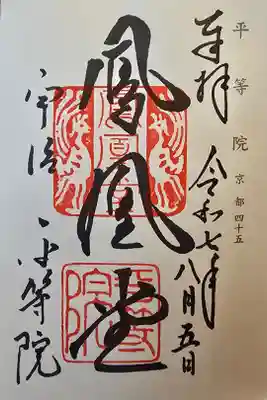 平等院 京都四十五
奉拝 令和七年八月五日
鳳凰堂
宇治 平等院